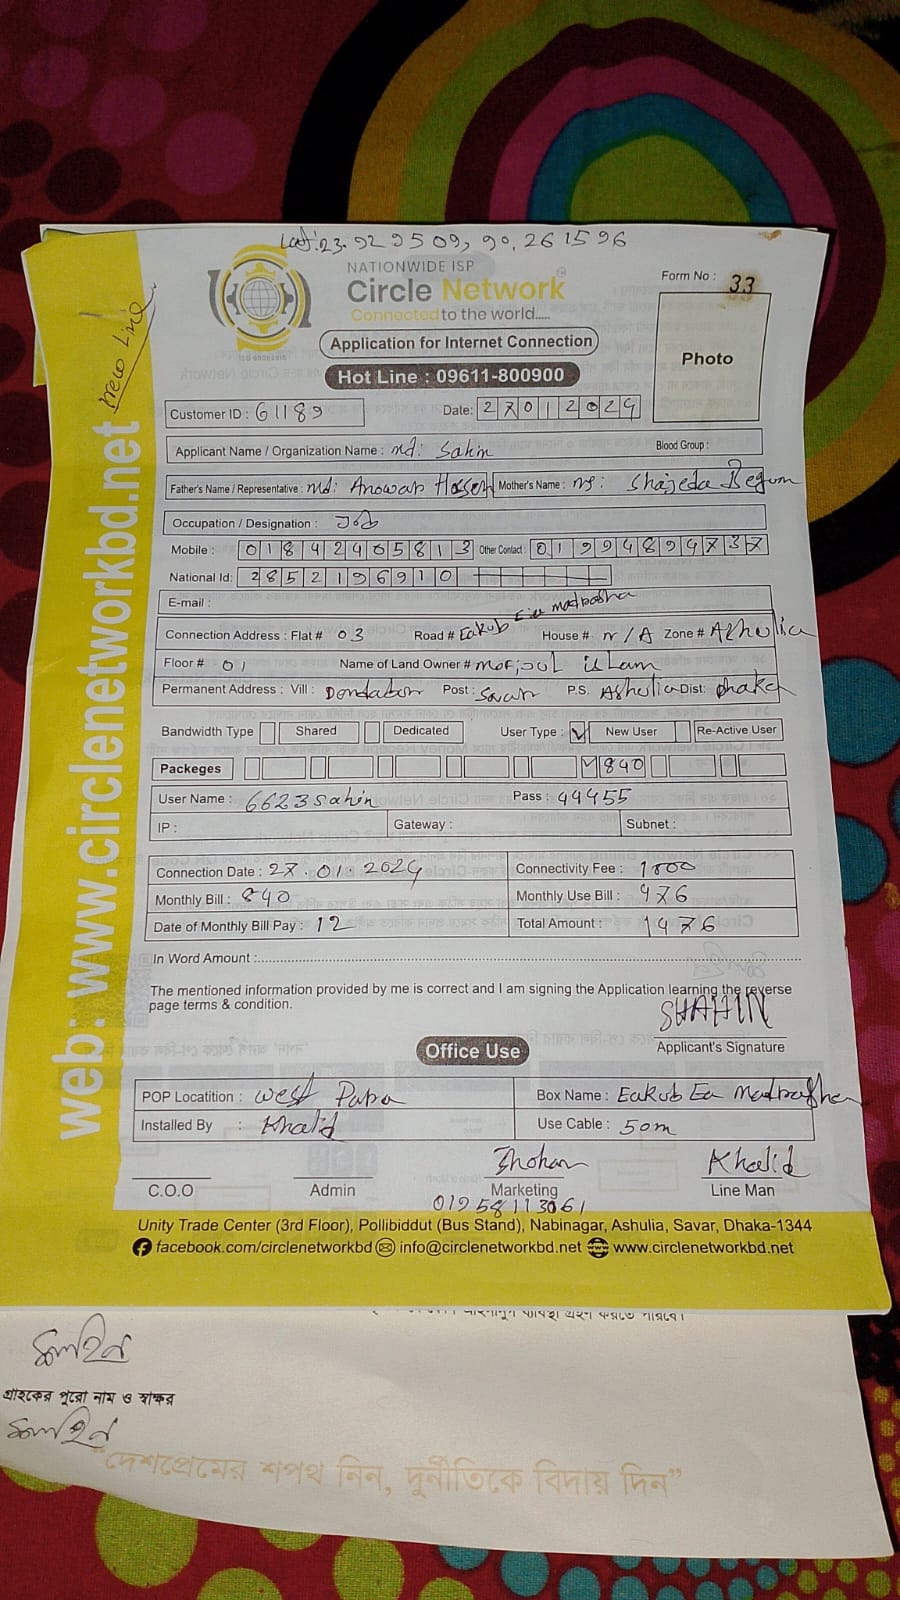 Lat:23.929509, 90.261596
NATIONWIDE ISP
Circle Network
Connected to the world.....
Form No : 33
Application for Internet Connection
Photo
Hot Line : 09611-800900
new Line
web: www.circlenetworkbd.net
Customer ID : 61189 Date: 27012024
Applicant Name / Organization Name : md: Sahin Blood Group :
Father's Name / Representative : md: Anowar Hossen Mother's Name : ms: Shajeda Begum
Occupation / Designation : Job
Mobile : 01842405813 Other Contact : 01994894737
National Id: 2852196910
E-mail :
Connection Address : Flat # 03 Road # Eakub Eia madrasha House # N/A Zone # Ashulia
Floor # 01 Name of Land Owner # mofijul islam
Permanent Address : Vill : Dendabor Post : Savar P.S. Ashulia Dist: Dhaka
Bandwidth Type Shared Dedicated User Type : ✓ New User Re-Active User
Packeges ✓ 840
User Name : 6623sahin Pass : 44455
IP : Gateway : Subnet :
Connection Date : 27.01.2024 Connectivity Fee : 1000
Monthly Bill : 840 Monthly Use Bill : 476
Date of Monthly Bill Pay : 12 Total Amount : 1476
In Word Amount :
The mentioned information provided by me is correct and I am signing the Application learning the reverse
page terms & condition.
SHAHIN
Applicant's Signature
Office Use
POP Locatition : West Para Box Name : Eakub Ea Madrasha
Installed By : Khalid Use Cable : 50m
Khalid
C.O.O Admin Marketing Line Man
01958113061
Unity Trade Center (3rd Floor), Pollibiddut (Bus Stand), Nabinagar, Ashulia, Savar, Dhaka-1344
facebook.com/circlenetworkbd info@circlenetworkbd.net www.circlenetworkbd.net
শাহিন
গ্রাহকের পুরো নাম ও স্বাক্ষর
শাহিন
"দেশপ্রেমের শপথ নিন, দুর্নীতিকে বিদায় দিন"